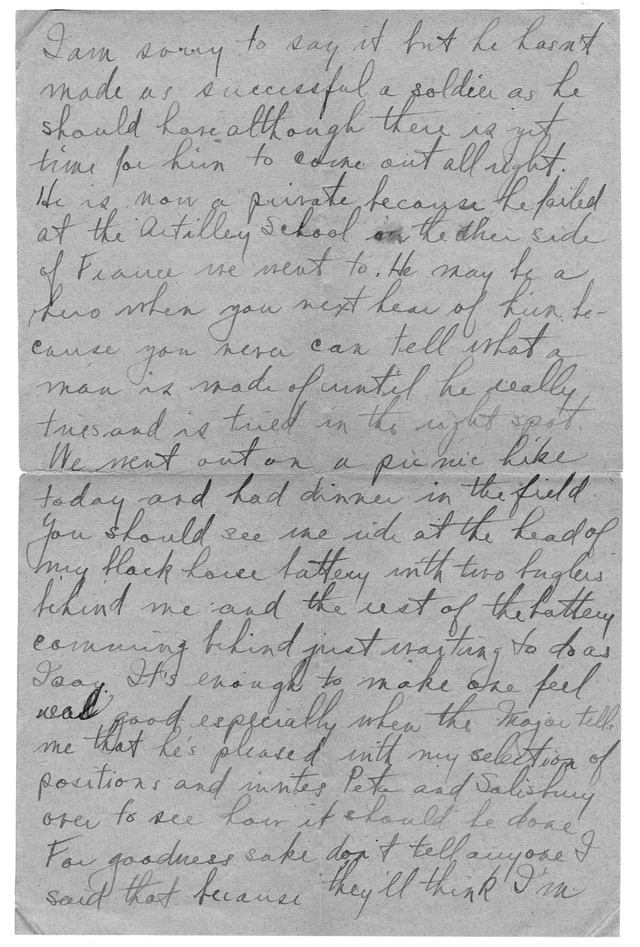 I am sorry to say it but he hasn't
made as successful a soldier as he
should have although there is yet
time for him to come out all right.
He is now a private because he failed
at the Artilley School on the other side
of France we went to. He may be a
hero when you next hear of him be-
cause you never can tell what a
man is made of until he really
tries and is tried in the right spot.
We went out on a picnic hike
today and had dinner in the field.
You should see me ride at the head of
my black horse battery with two buglers
behind me and the rest of the battery
comming behind just waiting to do as
I say. It's enough to make one feel
real good especially when the Major tells
me that he's pleased with my selection of
positions and invites Pete and Salisbury
over to see how it should be done.
For goodness sake don't tell anyone I
said that because they'll think I'm